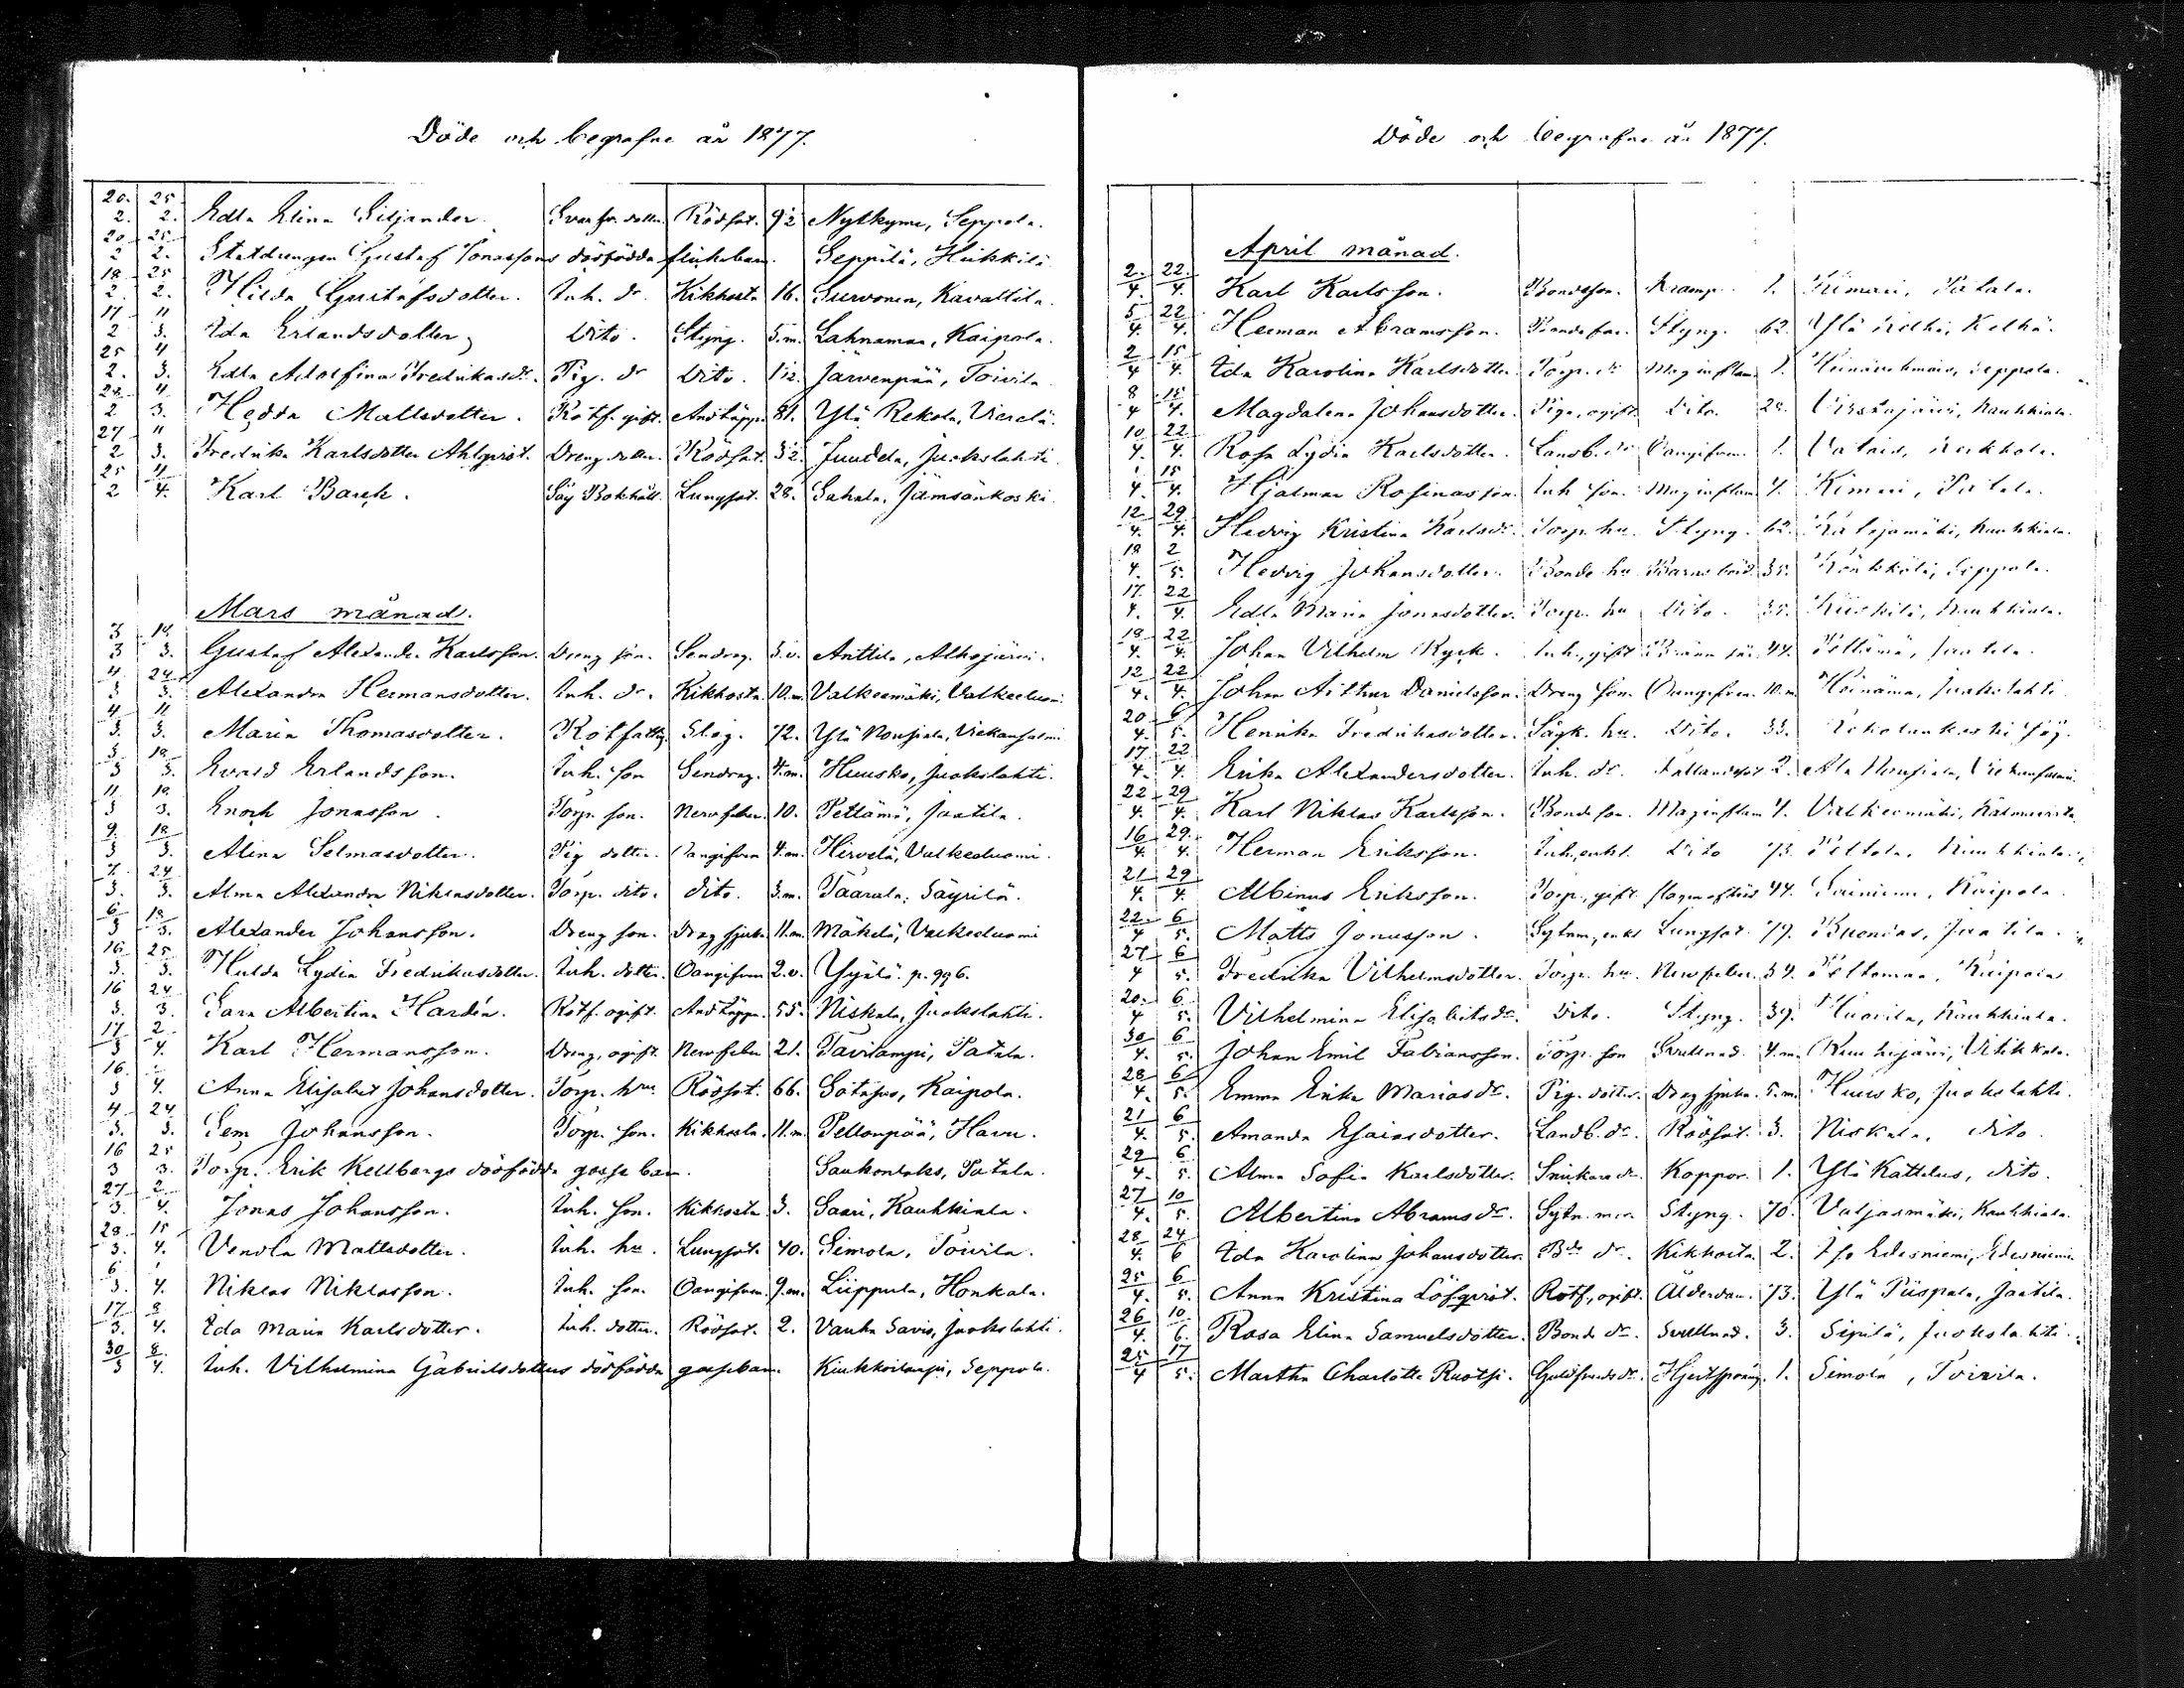 Döde och begrafne år 1877.
20/2. 25/2. Edla Elina Siljander. Svarfar dotter. Rödsot. 9½ Nytkyme, Seppola.
20/2 25/2. Statdrengen Gustaf Jonassons dödfödda flickebarn. Seppilä, Hukkilä
18/2. 25/2. Hilda Gustafsdotter. Inh. dr. Kikhosta 16. Survonen, Kavattila.
17/2 11/3. Ida Erlandsdotter, Dito. Styng. 5.m. Lahnaman, Kaipola.
25/2. 4/3. Edla Adolfina Fredrikasdr. Pig. dr Dito. 1½. Järvenpää, Toivila.
4/3. Hedda Mattsdotter. Rotf. gift. Andtäppa 81. Ylä Rekola, Vierelä.
27/2 11/3. Fredrika Karlsdotter Ahlqvist. Dreng dotter. Rödsot. 3½. Juudela, Juokslahti
25/2 11/4. Karl Bauk. Såg Bokhåll. Lungsot. 28. Sahala, Jämsänkoski.
Mars månad.
3/3 18/3. Gustaf Alexander Karlsson. Dreng son. Sendrag. 3.v. Anttila, Alhojärvi.
4/3 24/3. Alexandra Hermansdotter. Inh. dr. Kikhosta. 10.m. Valkeemäki, Valkeeluomi
4/3. 11/3. Maria Thomasdotter. Rotfattig. Slag. 72. Ylä Nousiala, Viekansalmi
3/3 18/3. Evald Erlandsson. Inh. son Sendrag. 4.m. Huusko, Juokslahti.
11/3 18/3. Enoch Jonasson. Torp. son. Nervfeber. 10. Peltämä, Jaatila.
9/3 18/3. Alina Selmasdotter. Pig dotter. Oangifven 4.m. Hirvelä, Valkeeluomi.
7/3. 24/3. Alma Alexandra Niklasdotter. Torp. dito. dito. 3.m. Taarala, Säyrilä.
6/3 18/3. Alexander Johansson. Dreng son. Drag sjuka 11.m. Mäkelä, Valkeeluomi
16/3. 25/3. Hulda Lydia Fredrikasdotter. Inh. dotter. Oangifven 2.v. Yijälä. p. 996.
16/3. 24/3. Sara Albertina Hardén. Rotf. ogift. Andtäppa. 55. Niskala, Juokslahti.
17/3 2/4. Karl Hermansson. Dreng, ogift. Nervfeber 21. Tavilampi, Patala.
16/3 4. Anna Elisabet Johansdotter. Torp. hru. Rödsot. 66. Kaipola.
4/3. 24/3. Sem Johansson. Torp. son. Kikhosta. 11.m. Peltonpää, Havu.
16/3 25/3. Torp. Erik Kellbergs dödfödda gossebarn. Saukonlaks, Patala.
27/3. 2/4. Jonas Johansson. Inh. son. Kikhosta 3. Saari, Kauhkiala.
28/3. 15/4. Vendla Mattsdotter. Inh. hu. Lungsot. 40. Simola, Toivila.
6/3. 1/4. Niklas Niklasson. Inh. son. Oangifven. 9.m. Liippula, Honkala.
17/3. 8/4. Ida Maria Karlsdotter. Inh. dotter. Rödsot. 2. Vanha Savis, Juokslahti.
30/3 8/4. Inh. Vilhelmina Gabrielsdotters dödfödda gossebarn. Kiukkoilampi, Seppola.
Döde och begrafne år 1877.
April månad.
2/4. 22/4. Karl Karlsson. Bondeson. Kramp. 1. Kimari, Patala.
5/4. 22/4. Herman Abramsson. Bonde far. Styng. 62. Ylä Kelhä, Kelhä.
2/4 15/4. Ida Karolina Karlsdotter. Torp. dr Mag inflam. 1. Seppola.
8/4 15/4. Magdalena Johansdotter. Piga, ogift. Dito. 28. Kauhkiala.
10/4. 22/4. Rosa Lydia Karlsdotter. Landb. dr Oangifven. 1.
1/4. 15/4. Hjalmar Rosinasson. Inh son. Mag inflam. 4. Kimari, Patala.
12/4. 29/4. Hedvig Kristina Karlsdr. Torp. hu. Styng. 62. Kauhkiala.
18/4. 2/5. Hedvig Johansdotter. Bonde hu Barns börd. 35. Seppola.
17/4. 22/4. Edla Maria Jonasdotter. Torp. hu Dito. 35. Kauhkiala.
18/4. 22/4. Johan Vilhelm Ryck. Inh., gift 44. Peltämä, Jaatila.
12/4. 22/4. Johan Arthur Danielsson. Dreng son. Oangifven. 10.m. Heinämä, Juokslahti.
20/4. 6/5. Henrika Fredrikasdotter. Sågk. hu. Dito. 33. Rekolankoski såg.
17/4. 22/4. Erika Alexandersdotter. Inh. dr. Fallandesot 2. Ala Nousiala, Viekansalmi.
22/4. 29/4. Karl Niklas Karlsson. Bonde son. Mag inflam 4. Valkeemäki,
16/4. 29/4. Herman Eriksson. Inh, enkl. Dito 73. Peltola, Kauhkiala.
21/4. 29/4. Albinus Eriksson. Torp., gift. 44. Sainiemi, Kaipola.
22/4 6/5. Matts Jonasson. Sytnm, enkl Lungsot. 79. Jaatila.
27/4 6/5. Fredrika Vilhelmsdotter. Torp. hu. Nervfeber. 34. Kaipola
20/4 6/5. Vilhelmina Elisabetsdr. Dito. Styng. 39. Huovila, Kauhkiala.
30/4. 6/5. Johan Emil Fabiansson. Torp. son Svullnad. 4.m.
28/4. 6/5. Emma Erika Mariasdr. Pig. dotter. Drag sjuka. 5.m. Huusko, Juokslahti.
21/4. 6/5. Amanda Esaiasdotter. Landb. dr. Rödsot. 3. Niskala, dito.
29/4. 6/5. Alma Sofia Karlsdotter. Snickare dr. Koppor. 1. Ylä Kattelus, dito.
27/4. 10/5. Albertina Abramsdr. Sytn. mor. Styng. 70. Valjasmäki, Kauhkiala.
28/4. 24/6 Ida Karolina Johansdotter. Bde dr. Kikhosta. 2. Iso Edesniemi, Edesniemi
25/4. 6/5. Anna Kristina Löfqvist. Rotf., ogift. Ålderdom. 73. Ylä Piispala, Jaatila.
26/4. 10/6. Rosa Elina Samuelsdotter. Bonde dr. Svullnad. 3. Sipilä, Juokslahti.
25/4 17/5. Martha Charlotte Ruotsi. Guldsmeds dr. Hjertsprång. 1. Simola, Toivila.